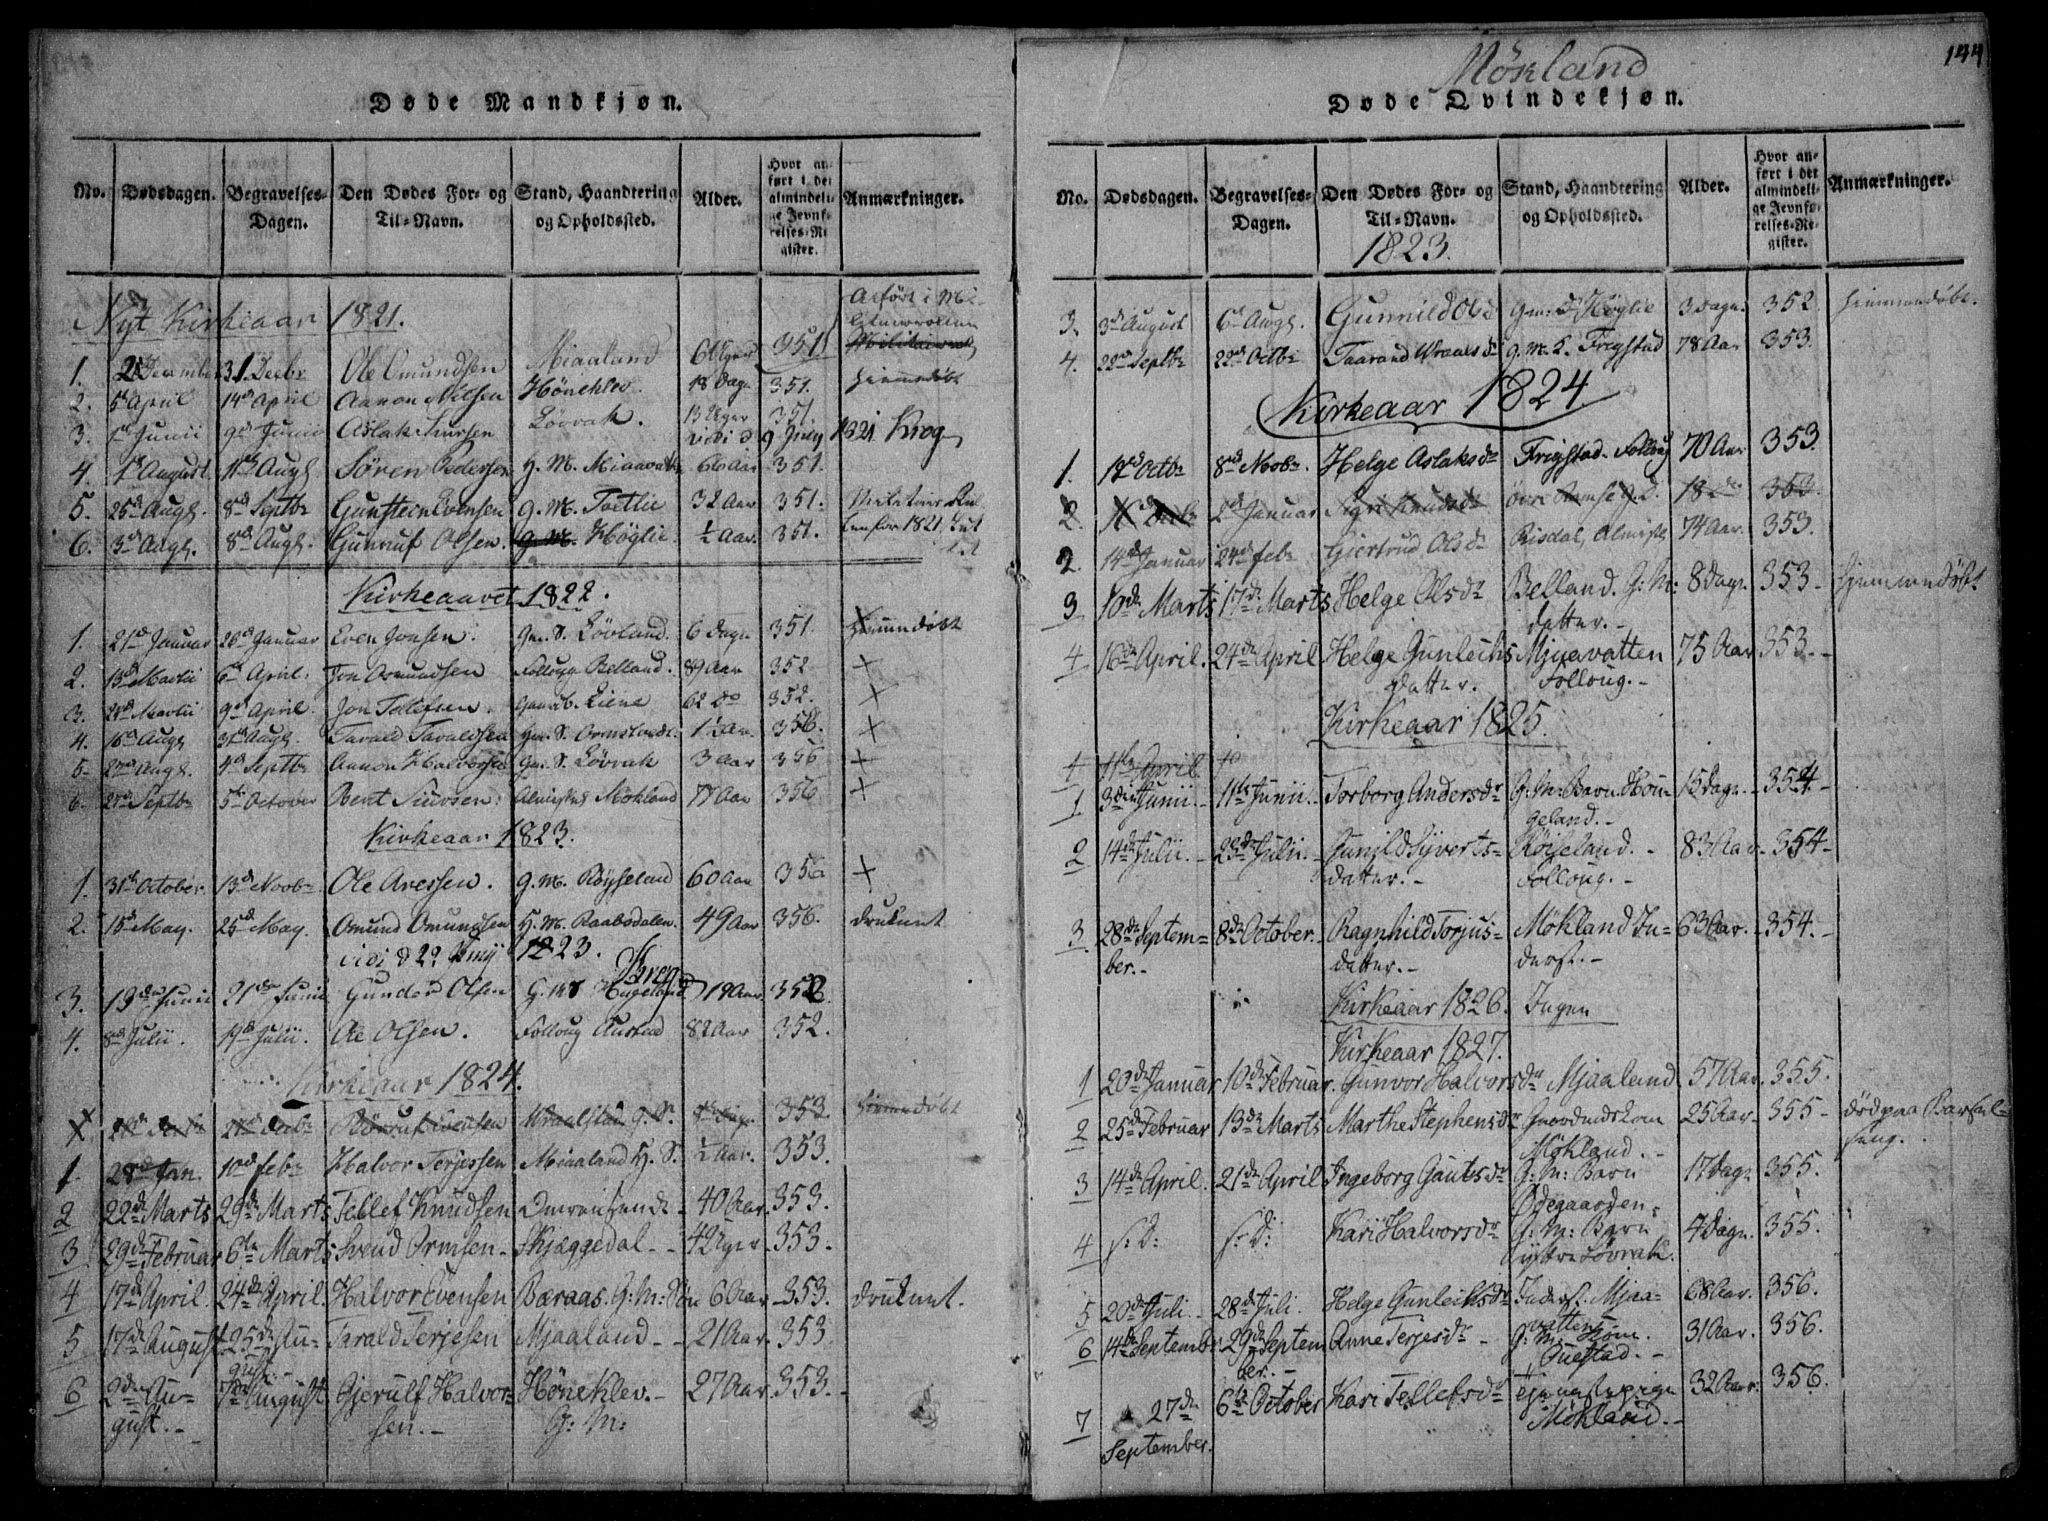 Døde Mandkjøn.
No. Dødsdagen. Begravelses-Dagen. Den Dødes For- og Til-Navn. Stand, Haandtering og Opholdssted. Alder. Hvor anført i det almindelige Jevnførelses-Register. Anmærkninger.
Nyt Kirkeaar 1821.
1. 31. Decbr Ole Omundsen Miaaland 351
2. 5d April 14d April Aanon Nilsen Höneklev 18 Dage 351. hiemmedöbt
3. Junii 9d Junii Aslak Lövrak. 13 Uger 351.
vidi d 9 July 1821 Krog
4. 1d August 11d Augs. Sören Pedersen H. M. Miaavatn 66 Aar 351.
5. 25d Augs. 8d Septbr Gunsteen Evensen g. M. Toetlie 32 Aar 351.
6. 3d Augs. 8d Augs. Gunnuf Olsen. g. M. Höglie ½ Aar. 351.
Kirkeaaret 1822.
1. 21d Januar 26d Januar Even Jonsen. Gm. S. Lövland. 6 Dage 351. hiemmedöbt
2. 13d Martii 6d April. Jon Osmundsen Follaug Belland. 89 Aar 352 +
3. Martii 9d April. Jon Tellefsen. Liene 62 do 352. +
4. 16d Augs 31d Augs. Tarald Taraldsen 1½ Aar. 356. +
5. Augs. 4d Septbr Aanon Halvorsen Gm. S. Lövrak 3 Aar 356 +
6. Septbr 5d October Bent Siursen. Mökland 77 Aar 356 +
Kirkeaar 1823.
1. 31d October. 13d Novbr. Ole Aressen. g. M. Röyseland 60 Aar 356 +
2. 15d May. 25d May. Omund Omundsen H. M. Raabodalen. 49 Aar 356. druknet
vidi d 29 1823. Krog
3. 13de Junii 21de Junii Gunder Olsen G. M. S Hugeland 19 Aar. 352.
4. 8d Julii. 19d Julii. Ae Olsen. Follaug Austad 82 Aar 352.
Kirkeaar 1824.
Decbr Evensen Wraalstad G. S. 353. hiemmedöbt
1. 28d Jan. 10d Febr Halvor Terjessen Miaaland H. S. ½ Aar. 353.
2 22de Marts 29de Marts Tellef Knudsen 40 Aar. 353.
3 29de Februar 6te Marts Svend Ormsen Skjæggedal 42 Uger 353.
4 17de April. 24de April. Halvor Evensen Baraas. G: M: Søn 6 Aar 353. druknet.
5 17de August 25de August. Tarald Terjesen Mjaaland 21 Aar. 353.
6 2de August. 7de August. Gjerulf Halvorsen. Höneklev. G: M: 27 Aar. 353.
144
Mökland
Døde Qvindekjøn.
No. Dødsdagen. Begravelses-Dagen. Den Dødes For- og Til-Navn. Stand, Haandtering og Opholdssted. Alder. Hvor anført i det almindelige Jevnførelses-Register. Anmærkninger.
1823.
3. 3d August 6d Augs. Gunnild Olsd. Gm. D. Höglie 3 dage. 352 hiemmedöbt.
4. 22d Septbr 22d Octbr Taarand Wraalsdr g. M. E. Frigstad 78 Aar 353.
Kirkeaar 1824
1. 12d Octbr 8d Novbr. Helge Aslaksdr Frigstad. Follaug 70 Aar 353.
2. 2d Januar Sigri Knudsdr 353.
2. 14d Januar 24d Febr Giertrud Olsdr Risdal, 74 Aar. 353.
3 10de Marts 17de Marts Helge Olsdr Belland. G: M: datter. 8 dage. 353 hjemmedöbt
4 16de April. 24de April Helge Gunleiksdatter. Mjaavatten Follaug. 75 Aar 353.
Kirkeaar 1825.
1 11te April
1 3die Junii. 11te Junii. Torborg Andersdr G: M: Barn Hougeland. 15 dage. 354
2 14de Julii. 23de Julii. Gunild Syvertsdatter. Röiseland. Follaug. 83 Aar. 354
3 28de September. 8de October. Ragnhild Torjusdatter. Mökland Inderst. 63 Aar. 354.
Kirkeaar 1826. Ingen
Kirkeaar 1827.
1 20de Januar 10de Februar. Gunvor Halvorsdr Mjaaland 57 Aar. 355.
2 25de Februar 13de Marts Marthe Stephensdr Mökland. 25 Aar. 355 död paa Barselseng.
3 14de April. 21de April Ingeborg Gautsdr G: M: Barn Ødegaarden. 17 dage. 355.
4 s: d: s: d: Kari Halvorsdr G: M: Barn ytre Lövrak. 4 dage. 355.
5 20de Juli. 28de Juli. Helge Gunleiksdr Inderst. Mjaavatten 68 Aar. 356.
6 14de September 29de September. Anne Terjesdr G: M: Kone. Questad. 31 Aar. 356.
7 27de September. 6te October Kari Tellefsdr Mökland. 32 Aar. 356.